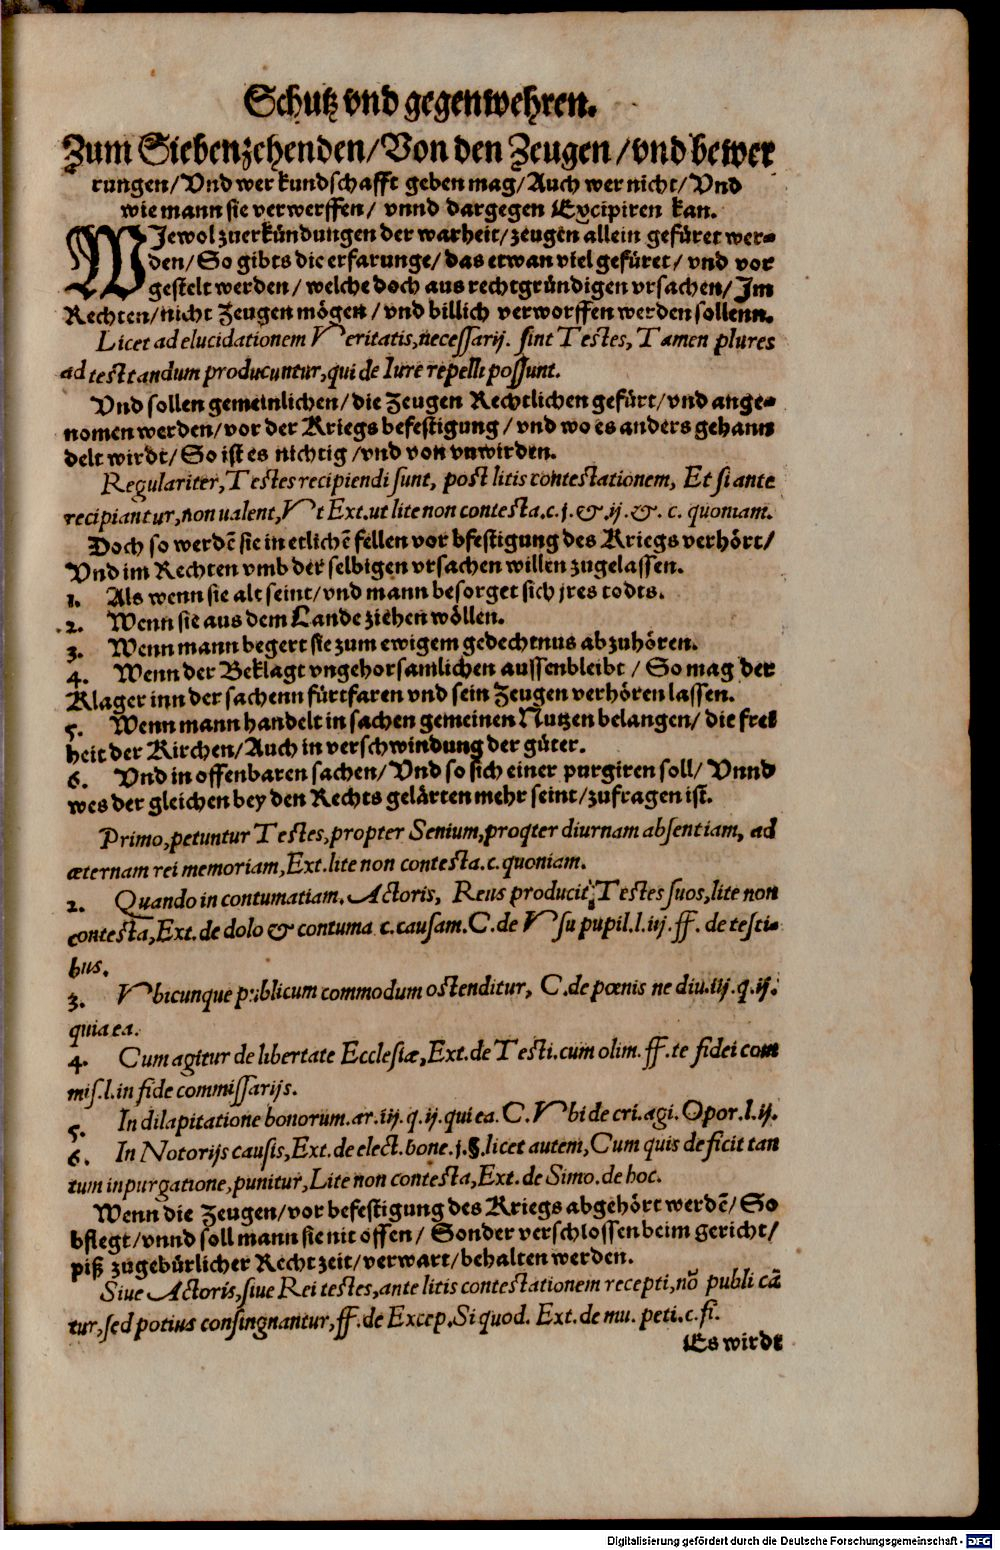 Schutz vnd gegenwehren.
Zum Siebenzehenden/Von den Zeugen/vnd bewer
rungen/Vnd wer kundschafft geben mag/Auch wer nicht/Vnd
wie mann sie verwerffen/ vnnd dargegen Excipiren kan.
WJewol zuerkündungen der warheit/zeugen allein gefüret wer-
den/So gibts die erfarunge/das etwan viel gefüret/ vnd vor
gestelt werden/welche doch aus rechtgründigen vrsachen/Jm
Rechten/nicht Zeugen mögen/vnd billich verworffen werden sollenn.
Licet ad elucidationem Veritatis,necessarij. sint Testes, Tamen plures
ad testtandum producuntur,qui de Iure repelli possunt.
Vnd sollen gemeinlichen/die Zeugen Rechtlichen gefürt/vnd ange-
nomen werden/vor der Kriegs befestigung/vnd wo es anders gehann
delt wirdt/So ist es nichtig/vnd von vnwirden.
Regulariter,Testes recipiendi sunt, post litis contestationem, Et si ante
recipiantur,non ualent,Vt Ext.ut lite non contesta.c.j.&.ij.&. c. quoniam.
Doch so werdē sie in etlichē fellen vor bfestigung des Kriegs verhört/
Vnd im Rechten vmb der selbigen vrsachen willen zugelassen.
1. Als wenn sie alt seint/vnd mann besorget sich jres todts.
2. Wenn sie aus dem Lande ziehen wöllen.
3. Wenn mann begert sie zum ewigem gedechtnus abzuhören.
4. Wenn der Beklagt vngehorsamlichen aussenbleibt/So mag der
Klager inn der sachenn fürtfaren vnd sein Zeugen verhören lassen.
5. Wenn mann handelt in sachen gemeinen Nutzen belangen/die frei
heit der Kirchen/Auch in verschwindung der güter.
6. Vnd in offenbaren sachen/Vnd so sich einer purgiren soll/Vnnd
wes der gleichen bey den Rechts gelärten mehr seint/zufragen ist.
Primo,petuntur Testes,propter Senium,proqter diurnam absentiam, ad
æternam rei memoriam,Ext.lite non contesta.c.quoniam.
2. Quando in contumatiam.Actoris, Reus producit Testes suos,lite non
contesta,Ext.de dolo & contuma c.causam.C.de Vsu pupil.l.iij.ff. de testi-
bus.
3. Vbicunque publicum commodum ostenditur, C.de pœnis ne diu.iij.q.ij.
quia ea.
4. Cum agitur de libertate Ecclesiæ,Ext.de Testi.cum olim.ff.te fidei com
mis.l.in fide commissarijs.
5. In dilapitatione bonorum.ar.iij.q.ij.qui ea.C.Vbi de cri.agi.Opor.l.ij.
6. In Notorijs causis,Ext.de elect.bone.j.§.licet autem,Cum quis deficit tan
tum in purgatione,punitur,Lite non contesta,Ext.de Simo.de hoc.
Wenn die Zeugen/vor befestigung des Kriegs abgehört werdē/So
bflegt/vnnd soll mann sie nit öffen/Sonder verschlossen beim gericht/
piß zugebürlicher Recht zeit/verwart/behalten werden.
Siue Actoris,siue Rei testes,ante litis contestationem recepti,nō publi cā
tur,sed potius consingnantur,ff.de Excep.Si quod. Ext.de mu. peti.c.fi.
Es wirdt
Digitalisierung gefördert durch die Deutsche Forschungsgemeinschaft - DFG